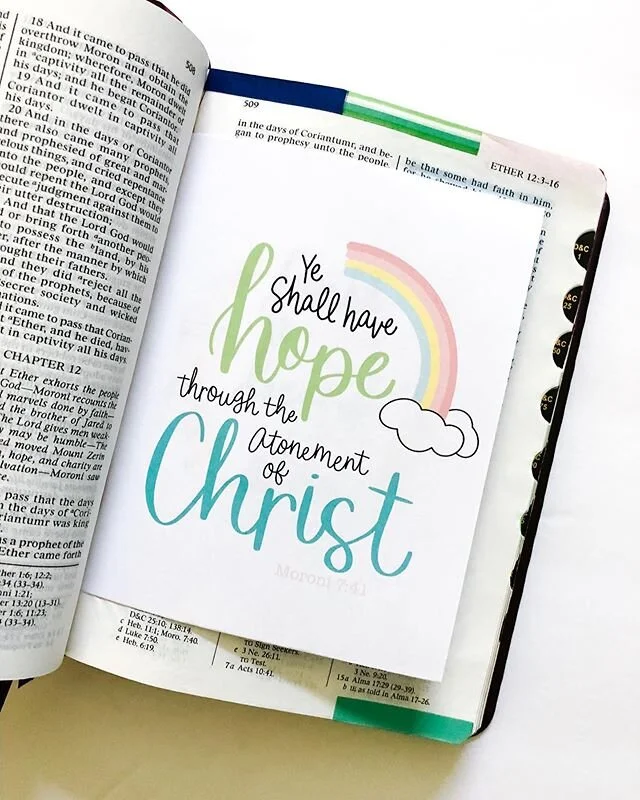 508
18 And it came to pass that he did
overthrow Moron and obtain the
kingdom; wherefore, Moron dwelt
in captivity all the remainder of
his days; and he begat Coriantor.
19 And it came to pass that
Coriantor dwelt in captivity all
his days.
20 And in the days of Coriantor
there also came many prophets,
and prophesied of great and mar-
velous things, and cried repentance
unto the people, and except they
would repent the Lord God would
execute judgment against them to
their utter destruction;
And that the Lord God would
or bring forth another peo-
to possess the land, by his
, after the manner by which
brought their fathers.
and they did reject all the
of the prophets, because of
secret society and wicked
nations.
it came to pass that Corian-
Ether, and he died, hav-
t in captivity all his days.
CHAPTER 12
Ether exhorts the people
God—Moroni recounts the
marvels done by faith—
the brother of Jared to
The Lord gives men weak-
may be humble—The
moved Mount Zerin
hope, and charity are
salvation—Moroni saw
pass that the days
in the days of Cori-
Coriantumr was king
as a prophet of the
Ether came forth
her 1:6; 12:2;
:34 (33–34).
ni 1:21;
er 13:20 (13–31).
er 1:6; 11:23;
34 (33–34).
509
ETHER 12:3–16
in the days of Coriantumr, and be-
gan to prophesy unto the people,
be that some had faith in him,
Ye
Shall have
hope
through the
Atonement
of
Christ
Moroni 7:41
D&C 25:10; 138:14.
c Heb. 11:1; Moro. 7:40.
d Luke 7:50.
e Heb. 6:19.
TG Sign Seekers.
e 3 Ne. 26:11.
TG Test.
7a Acts 10:41.
3 Ne. 9:20.
15a Alma 17:29 (29–39).
b as told in Alma 17–26.
D&C
1
D&C
25